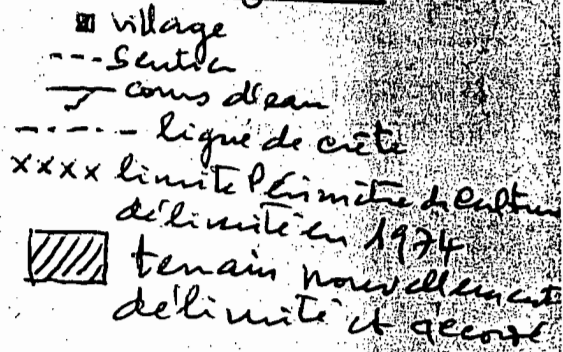 village
Sentier
cours d'eau
ligne de crête
xxxx limite Périmètre de Culture
délimité en 1974
terrain nouvellement
délimité et